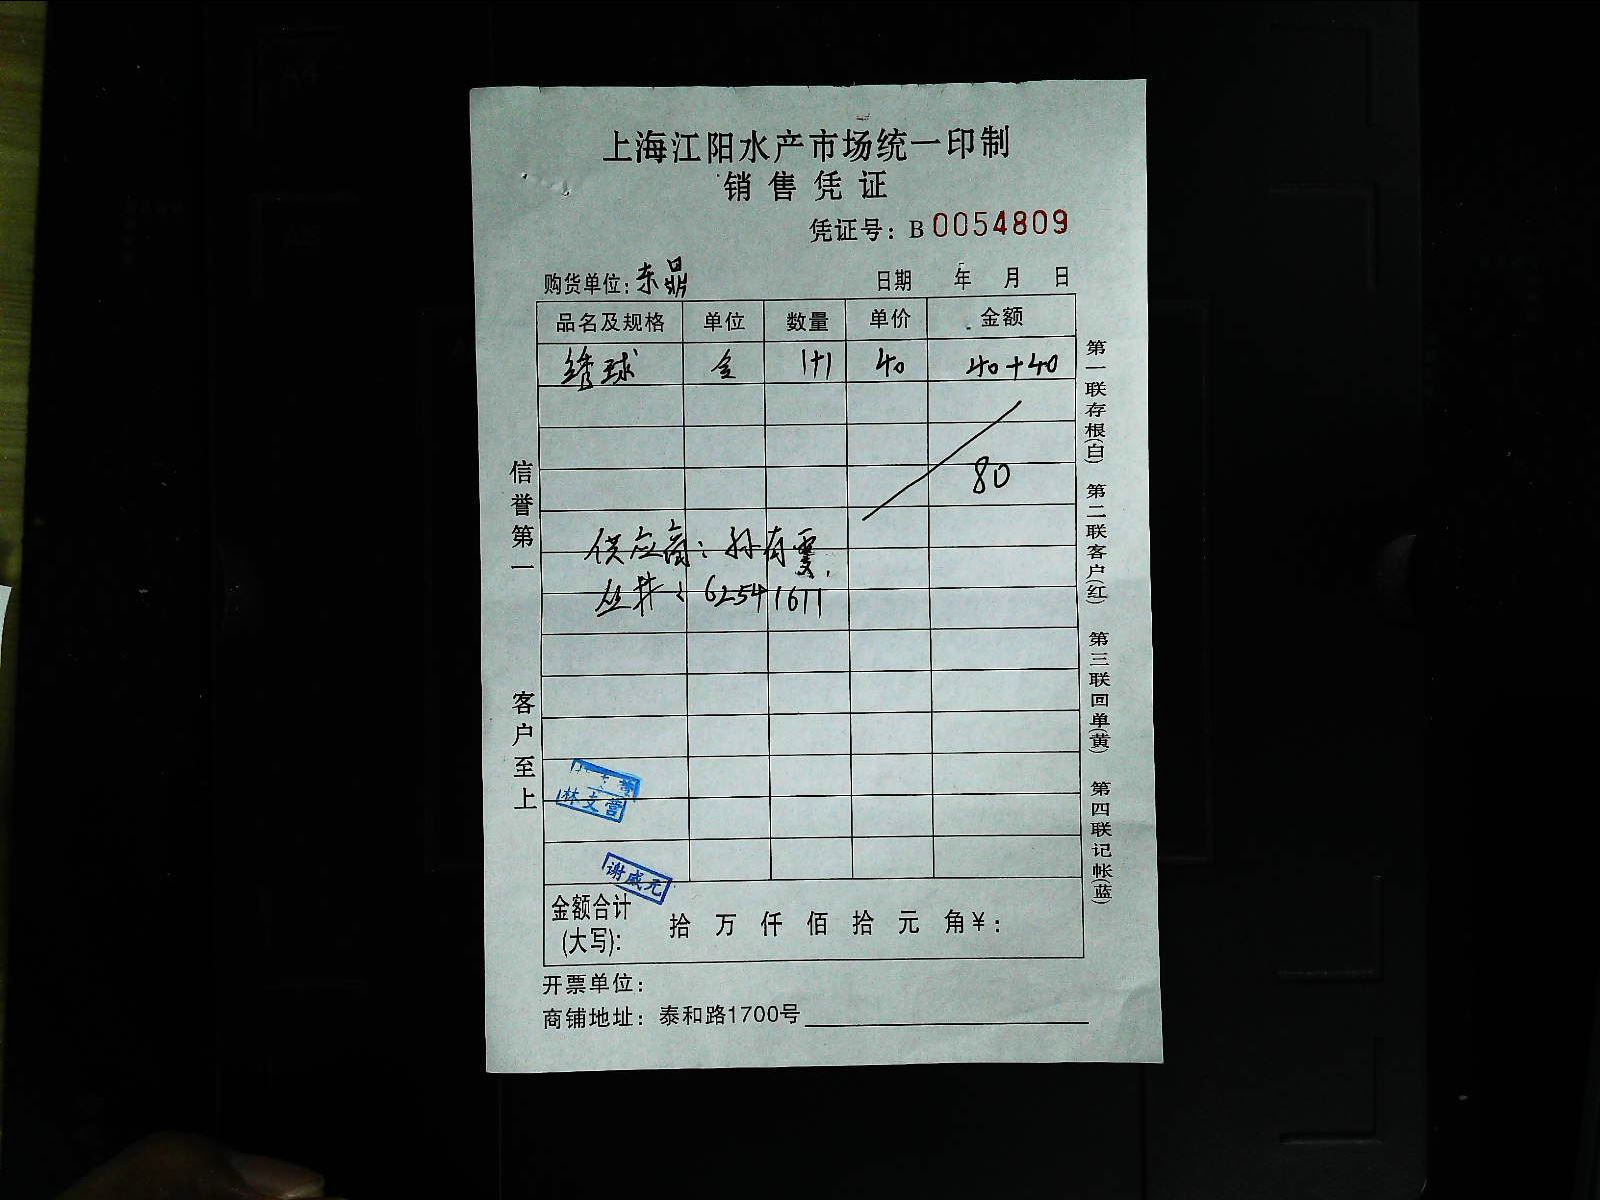 上海江阳水产市场统一印制
销售凭证
凭证号: B 0054809
购货单位: 东鼎 日期 年 月 日
品名及规格 单位 数量 单价 金额
绣球 1+1 40 40+40
80
供应商: 孙有
: 62541611
林支营
谢威元
金额合计(大写): 拾 万 仟 佰 拾 元 角 ¥:
开票单位:
商铺地址: 泰和路1700号
信誉第一 客户至上
第一联存根(白) 第二联客户(红) 第三联回单(黄) 第四联记帐(蓝)